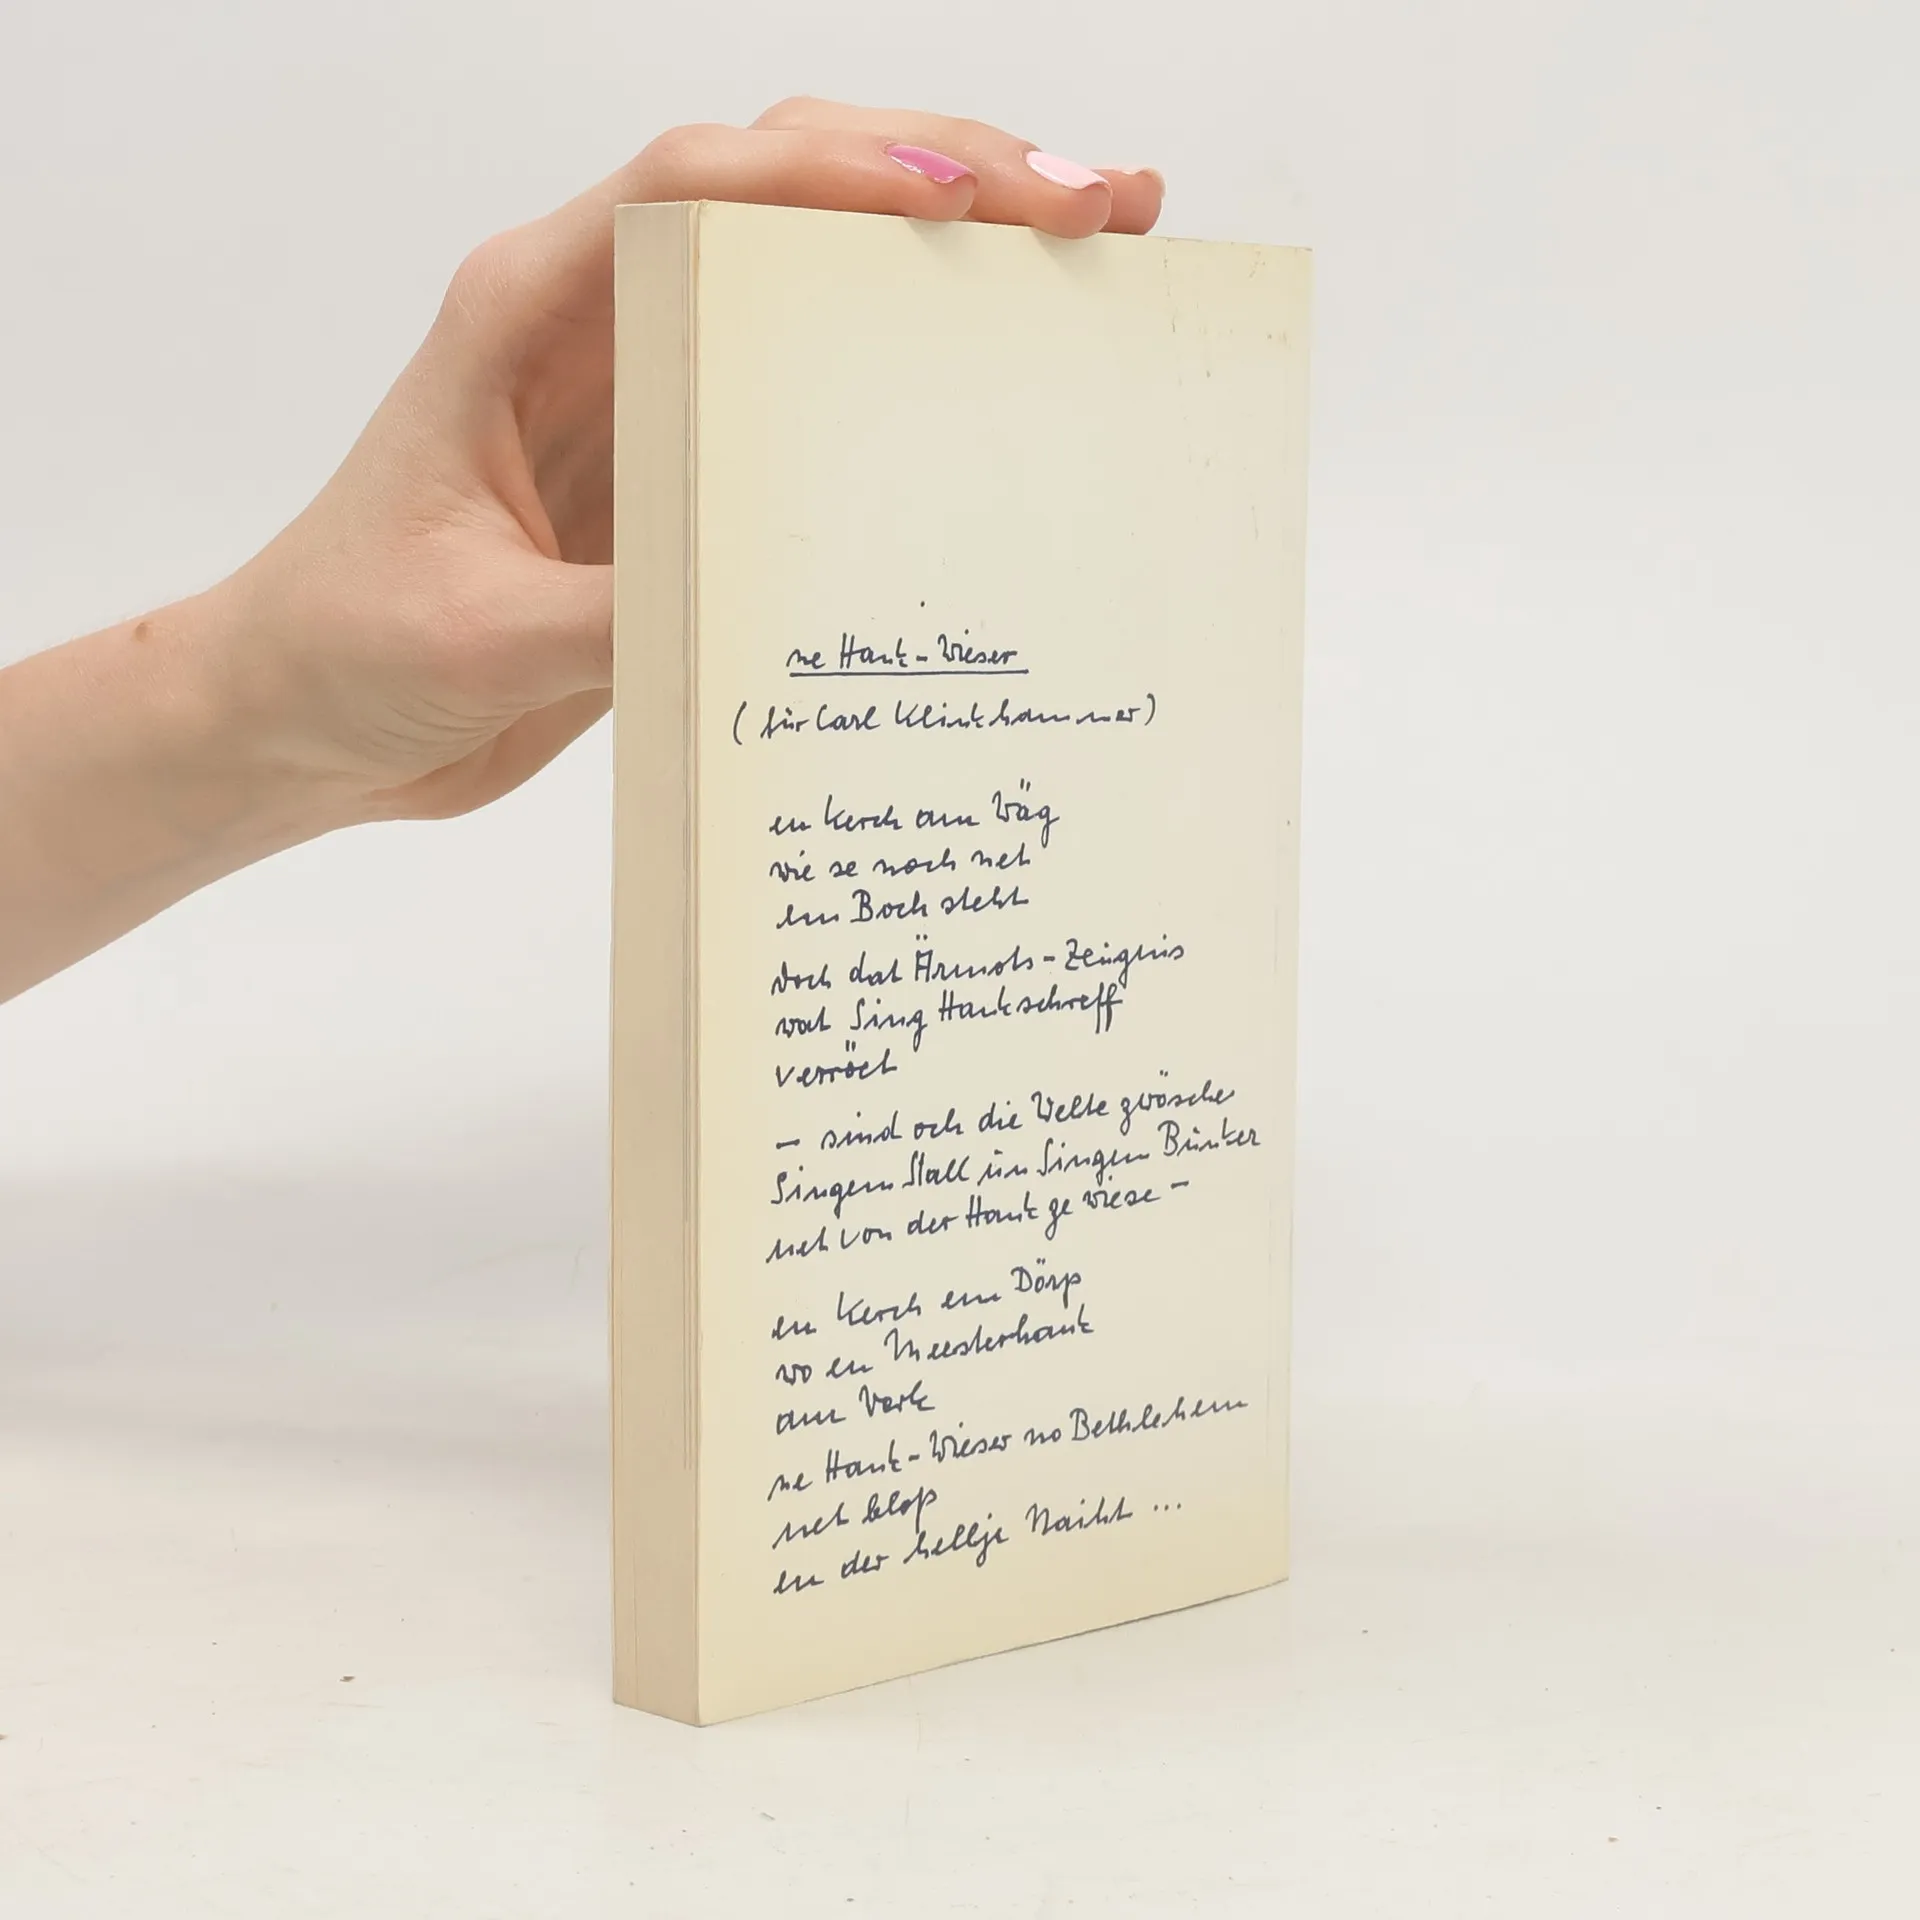 ne Hank-Wieser
(für Carl Klinkhammer)
en Kerch am Wäg
wie se noch net
em Boch steht
doch dat Ärmots-Zeugnis
wat Sing Hankschreff
verröet
– sind och die Welte zwösche
Singem Stall un Singem Bunker
net von der Hank ze wiese –
en Kerch em Dörp
wo en Meesterhank
am Werk
ne Hank-Wieser no Bethlehem
net bloß
en der hellje Naiht ...